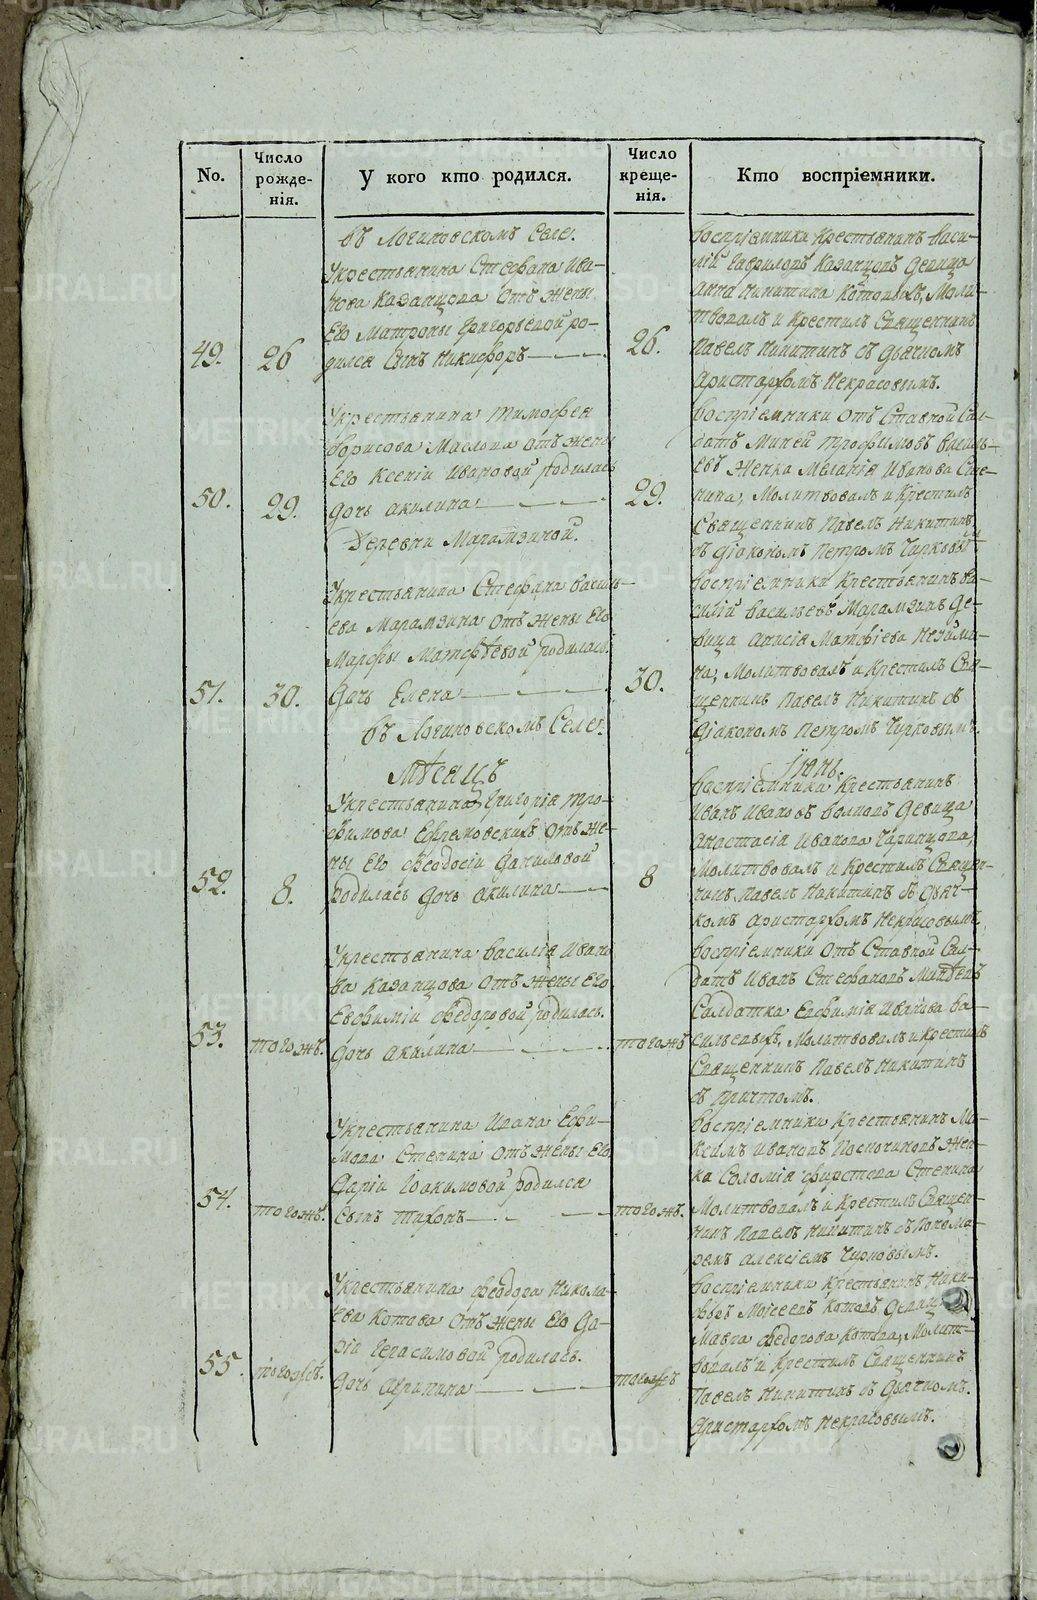 No.
Число рожде-нія.
У кого кто родился.
Число креще-нія.
Кто воспріемники.
въ Логиновскомъ Селе.
Укрестьянина Стефана Ива-
нова Казанцова Отъ жены
Его Матроны Григорьевой ро-
49. 26
дился Сынъ Никифоръ
26.
воспріемники Крестьянинъ Васи-
лій Гавриловъ Казанцовъ Девица
Анна Никитина Моли-
твовалъ и Крестилъ Священникъ
Павелъ Никитинъ съ дьячкомъ
Аристархомъ Некрасовымъ.
Укрестьянина Тимофея
Борисова Маслова отъ жены
Его Ксеніи Ивановой родилась
50. 29.
дочь Акилина
29.
воспріемники Отъ Ставной Сал-
датъ Миней Трофимовъ
Женка Меланія Иванова Сте-
нина, Молитвовалъ и Крестилъ
Священникъ Павелъ Никитинъ
съ діакономъ Петромъ
Деревни Марамзиной.
Укрестьянина Стефана Василь-
ева Марамзина отъ жены Его
Марфы Матфѣевой родилась
51. 30.
Дочь Елена
30.
воспріемники Крестьянинъ Ва-
силій Васильевъ Марамзинъ Де-
вица Анисія Матфіева
Молитвовалъ и Крестилъ Свя-
щенникъ Павелъ Никитинъ съ
Діакономъ Петромъ Чирковымъ.
въ Логиновскомъ Селе.
Мѣсяцъ Іюнь.
Укрестьянина Григорія Тро-
фимова Ефремовскихъ отъ же-
ны Его Феодосіи Даниловой
52. 8.
родилась дочь Акилина
8
воспріемники Крестьянинъ
Иванъ Ивановъ Девица
Анастасія Иванова
Молитвовалъ и Крестилъ Священ-
никъ Павелъ Никитинъ съ дьяч-
комъ Аристархомъ Некрасовымъ
Укрестьянина Василія Ивано
ва Казанцова отъ жены Его
Евфиміи Федоровой родилась.
53. тогожъ.
дочь Акилина
тогожъ
воспріемники Отъ Ставной Сал-
датъ Иванъ Стефановъ
Салдатка Евфимія Иванова Ва-
сильевыхъ, Молитвовалъ и крестилъ
Священникъ Павелъ Никитинъ
съ причтомъ.
Укрестьянина Ивана Ефи-
мова Стенина отъ жены Его
Даріи Іоакимовой родился
54. тогожъ.
сынъ Тихонъ
тогожъ.
воспріемники Крестьянинъ Ма-
ксимъ Ивановъ Жен-
ка Соломія Стенина
Молитвовалъ и Крестилъ Священ-
никъ Павелъ Никитинъ съ Понома-
ремъ Алексіемъ Чирковымъ.
Укрестьянина Феодора Никола-
ева Котова отъ жены Его Да-
ріи Герасимовой родилась.
55. тогожъ.
дочь Агрипина
тогожъ
воспріемники Крестьянинъ Ники-
Моісеевъ Котовъ Девица
Мавра Федорова Котова, Молит-
вовалъ и Крестилъ Священникъ
Павелъ Никитинъ съ Дьячкомъ.
Аристархомъ Некрасовымъ.
METRIKI.GASO-URAL.RU